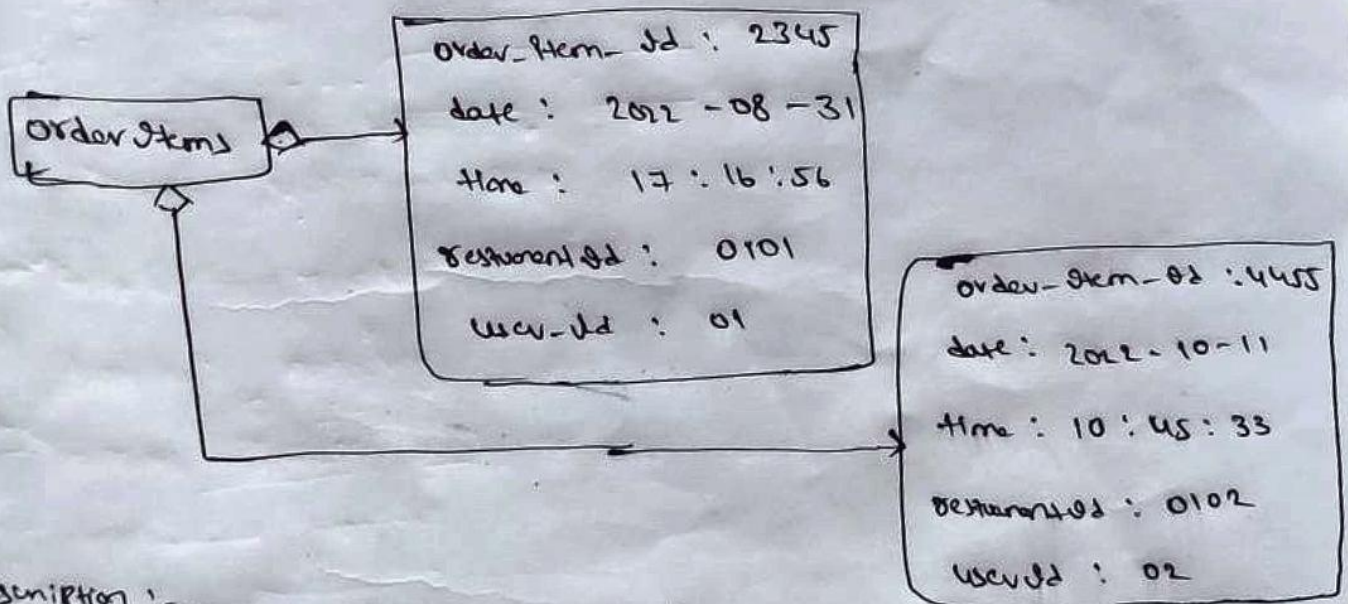 orderItems
order_Item_Id : 2345
date : 2022-08-31
time : 17:16:56
restuarantId : 0101
user_Id : 01
order_Item_Id : 4455
date : 2022-10-11
time : 10:45:33
restuarantId : 0102
userId : 02
scription :